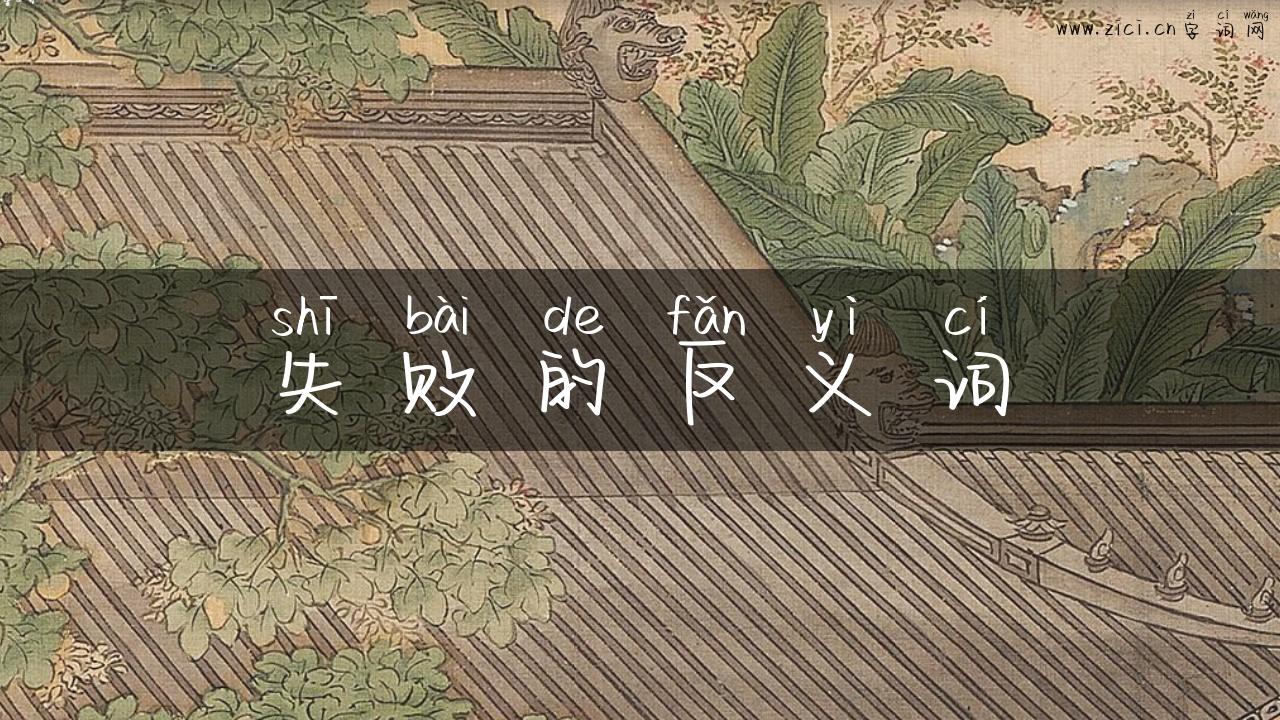 zì cí wǎng
www.zici.cn 字词网
shī bài de fǎn yì cí
失败的反义词